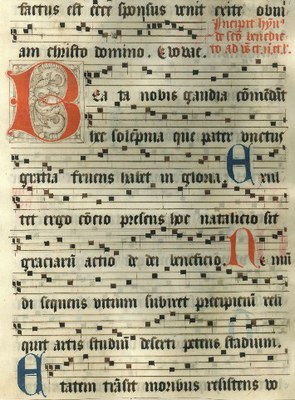 factus est ecce sponsus venit exite obvi
am christo domino. Evovae.
Incipit hym
de sco benedic
to ad
Bea ta nobis gaudia comedūt
hec solēpnia que pater unctus
gratia fruens habet in gloria. Exul
tet ergo cōcio presens hoc natalicio sit
graciarū actio de dei beneficio. Ne mū
di sequens vitium subiret precipiciū reli
quit artis studiū deserti petens stadium.
Etatem trāsit moribus resistens vo